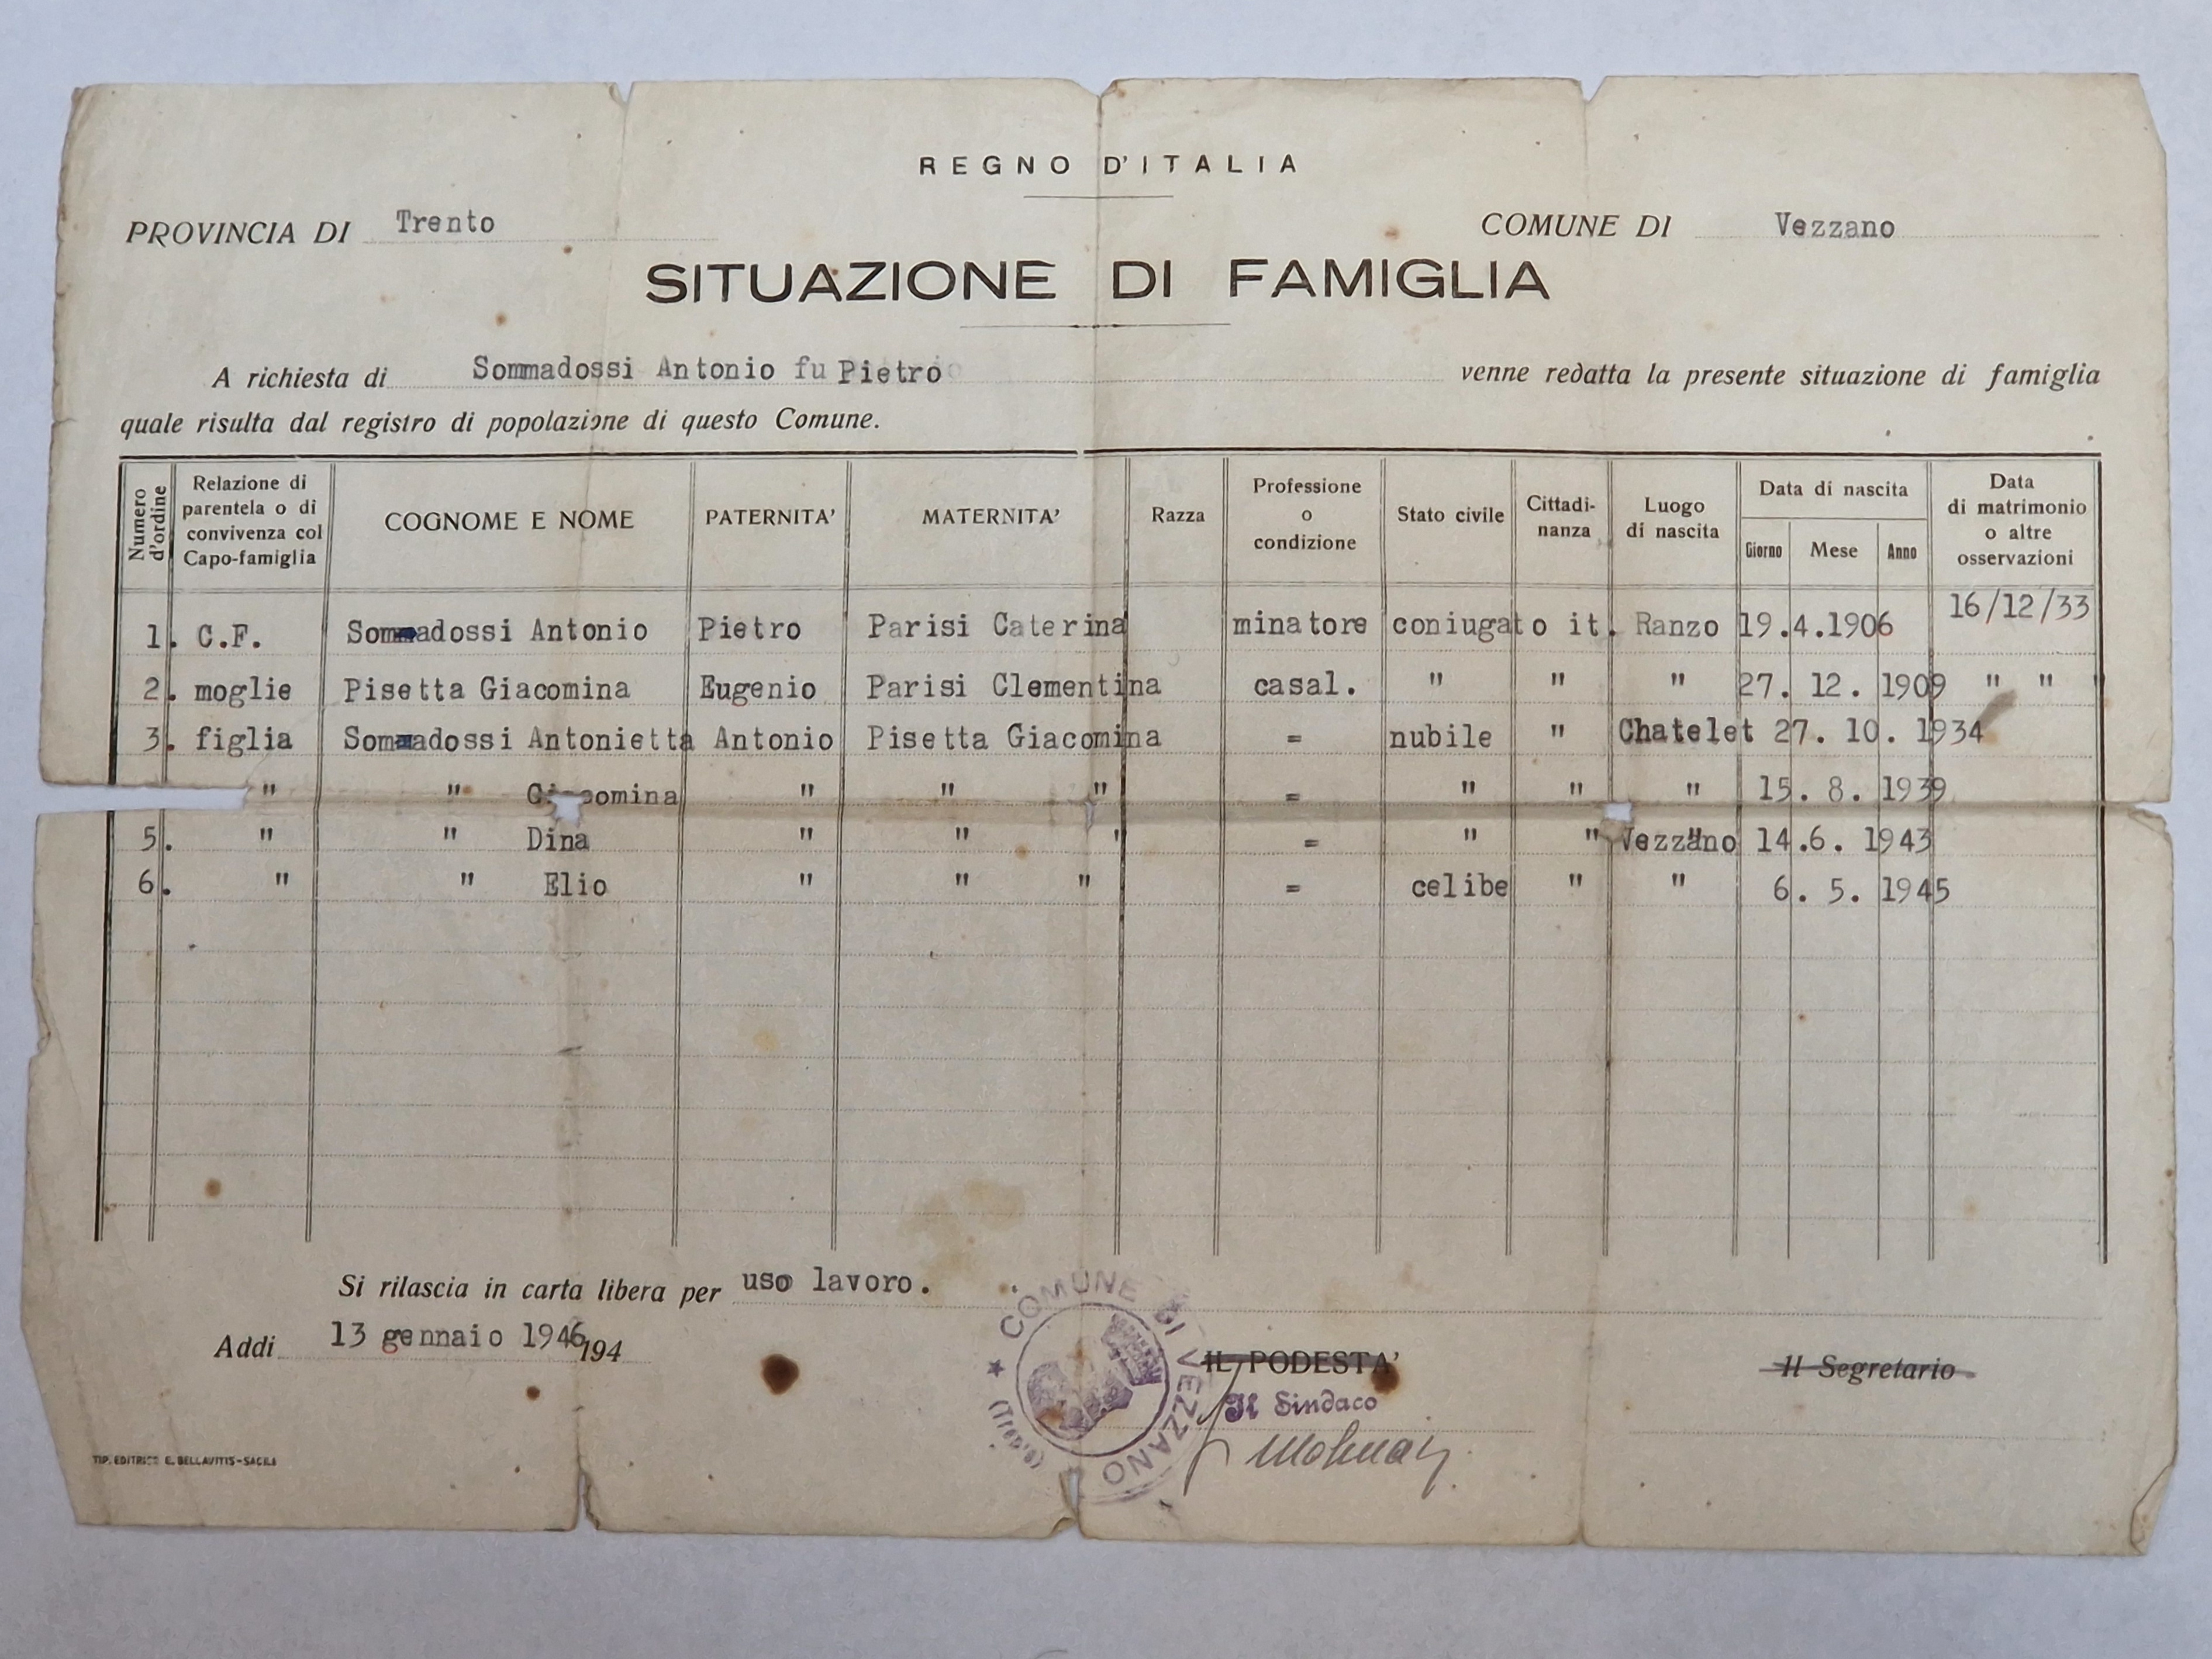 REGNO D'ITALIA
PROVINCIA DI Trento COMUNE DI Vezzano
SITUAZIONE DI FAMIGLIA
A richiesta di Sommadossi Antonio fu Pietro venne redatta la presente situazione di famiglia
quale risulta dal registro di popolazione di questo Comune.
Numero d'ordine Relazione di parentela o di convivenza col Capo-famiglia COGNOME E NOME PATERNITA' MATERNITA' Razza Professione o condizione Stato civile Cittadi-nanza Luogo di nascita Data di nascita Giorno Mese Anno Data di matrimonio o altre osservazioni
1. C.F. Sommadossi Antonio Pietro Parisi Caterina minatore coniugato it. Ranzo 19.4.1906 16/12/33
2. moglie Pisetta Giacomina Eugenio Parisi Clementina casal. " " " 27. 12. 1909 " " "
3. figlia Sommadossi Antonietta Antonio Pisetta Giacomina = nubile " Chatelet 27. 10. 1934
" " Giacomina " " " = " " " 15. 8. 1939
5. " " Dina " " " = " " Vezzano 14.6. 1943
6. " " Elio " " " = celibe " " 6. 5. 1945
Si rilascia in carta libera per uso lavoro.
Addi 13 gennaio 1946 194
COMUNE DI VEZZANO
(Trento)
IL PODESTA' Il Segretario
Il Sindaco
TIP. EDITRICE E. BELLAVITIS-SACILE